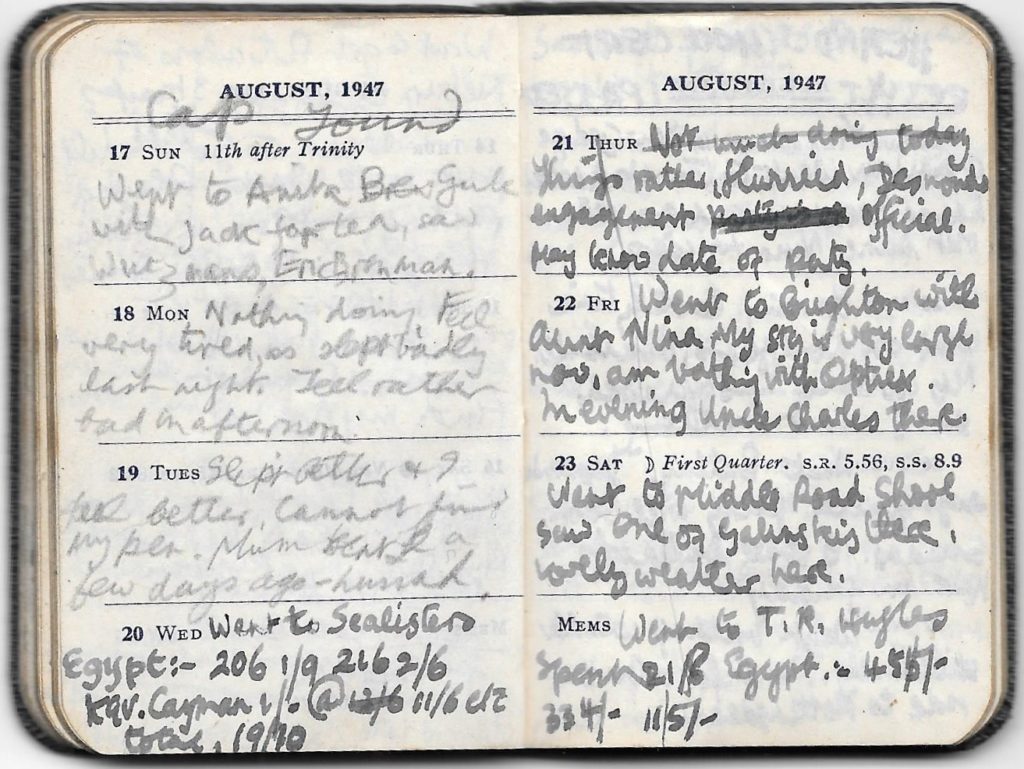 AUGUST, 1947
Cap found
17 SUN 11th after Trinity
Went to Anita Gule
with Jack for tea, saw
Eric Bronman.
18 MON Nothing doing Feel
very tired, as slept badly
last night. Feel rather
bad in afternoon.
19 TUES Slept better & I
feel better, Cannot find
my pen. Mum sent a
few days ago - hurrah.
20 WED Went to Sealisters
Egypt:- 206 1/9 216 2/6
Cayman 1/- @ 12/6 11/6 etc
total, 19/10
AUGUST, 1947
21 THUR Not much doing today
things rather flurried, Desmonds
engagement official.
May know date of party.
22 FRI Went to Brighton with
Aunt Nina My is very large
now, am bathing with
In evening Uncle Charles there.
23 SAT ☽ First Quarter. S.R. 5.56, S.S. 8.9
Went to Middle Road Shool
saw one of Galinskis there,
lovely weather here.
MEMS Went to T. R. Hughes
Spent 21/6 Egypt:-
334/- 115/-